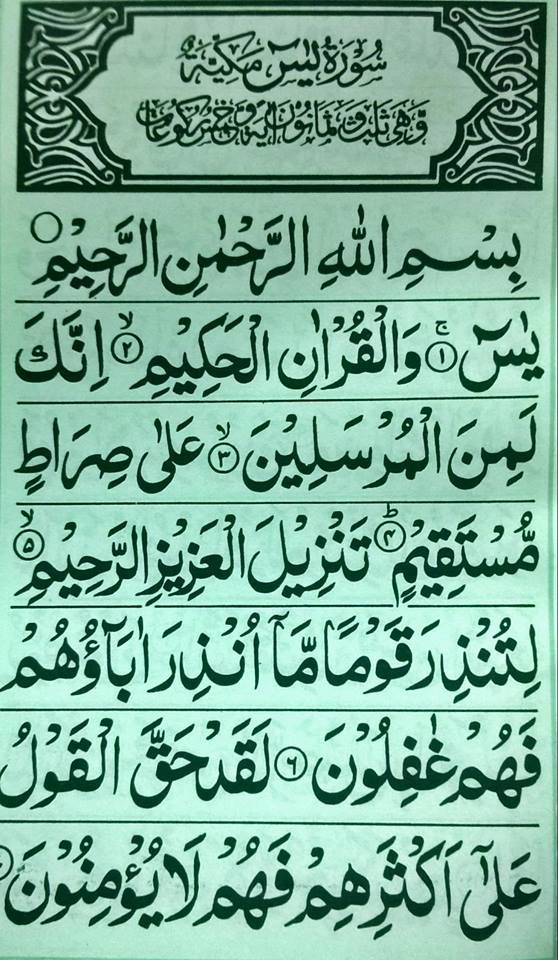 سُوْرَةُ يٰسٓ مَكِّيَّةٌ
وَّهِيَ ثَلٰثٌ وَّثَمَانُوْنَ اٰيَةً وَّخَمْسُ رُكُوْعَاتٍ
بِسْمِ اللّٰهِ الرَّحْمٰنِ الرَّحِيْمِ ○
يٰسٓ ۚ﴿۱﴾ وَالْقُرْاٰنِ الْحَكِيْمِ ۙ﴿۲﴾ اِنَّكَ
لَمِنَ الْمُرْسَلِيْنَ ۙ﴿۳﴾ عَلٰى صِرَاطٍ
مُّسْتَقِيْمٍ ؕ﴿۴﴾ تَنْزِيْلَ الْعَزِيْزِ الرَّحِيْمِ ۙ﴿۵﴾
لِتُنْذِرَ قَوْمًا مَّآ اُنْذِرَ اٰبَآؤُهُمْ
فَهُمْ غٰفِلُوْنَ ﴿۶﴾ لَقَدْ حَقَّ الْقَوْلُ
عَلٰٓى اَكْثَرِهِمْ فَهُمْ لَا يُؤْمِنُوْنَ